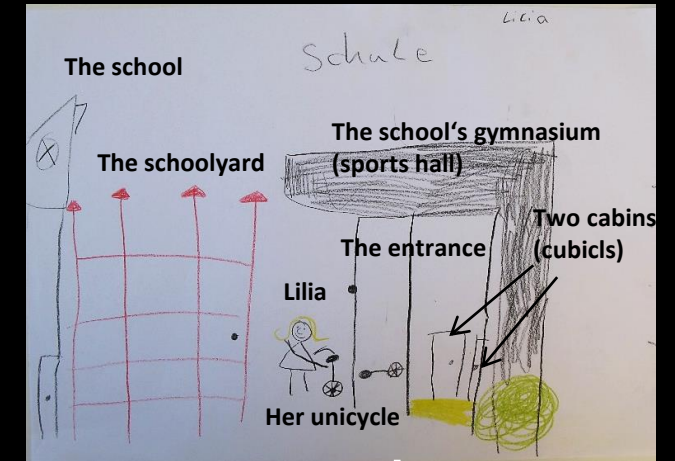 Lilia
Schule
The school
The school's gymnasium
(sports hall)
The schoolyard
Two cabins
(cubicls)
The entrance
Lilia
Her unicycle